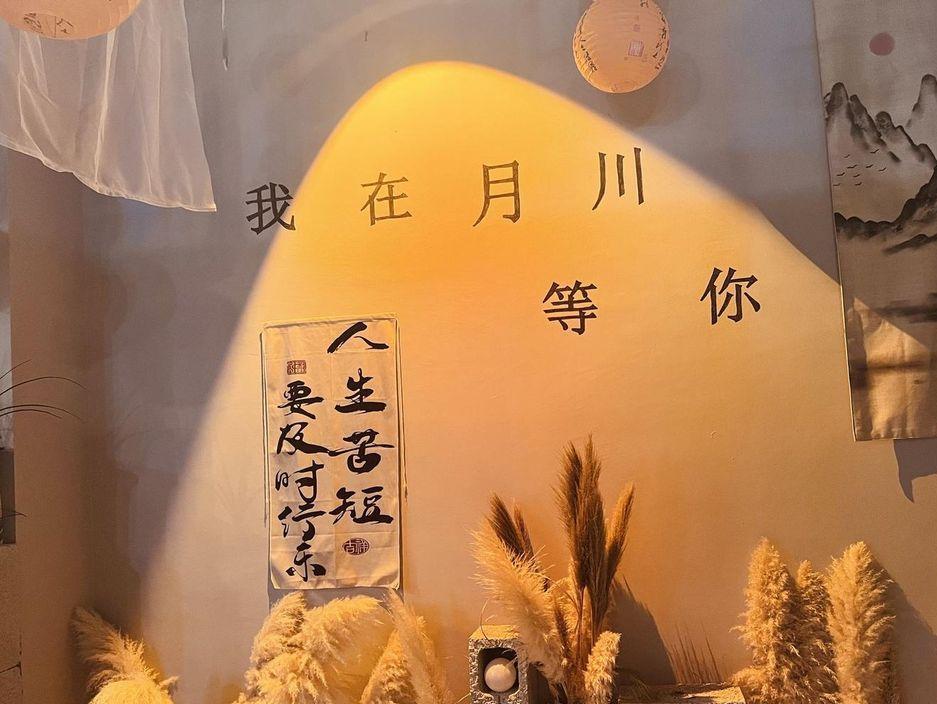 我在月川
等你
人生苦短
要及时行乐